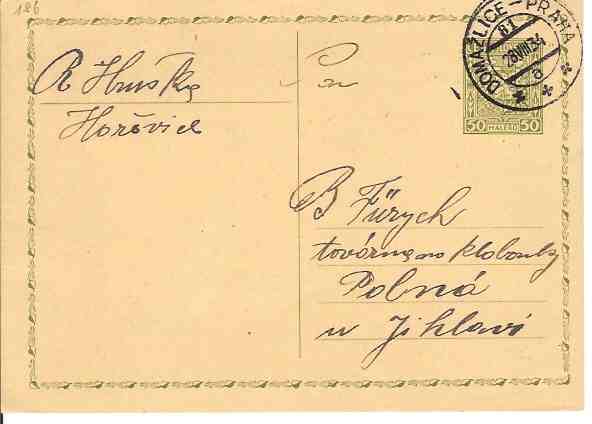 186
DOMAŽLICE-PRAHA
81
28.VIII.34
6
50 HALÉŘŮ 50
R Hruška
Hořovice
Pan
B Fürych
továrna na klobouky
Polná
u Jihlavi